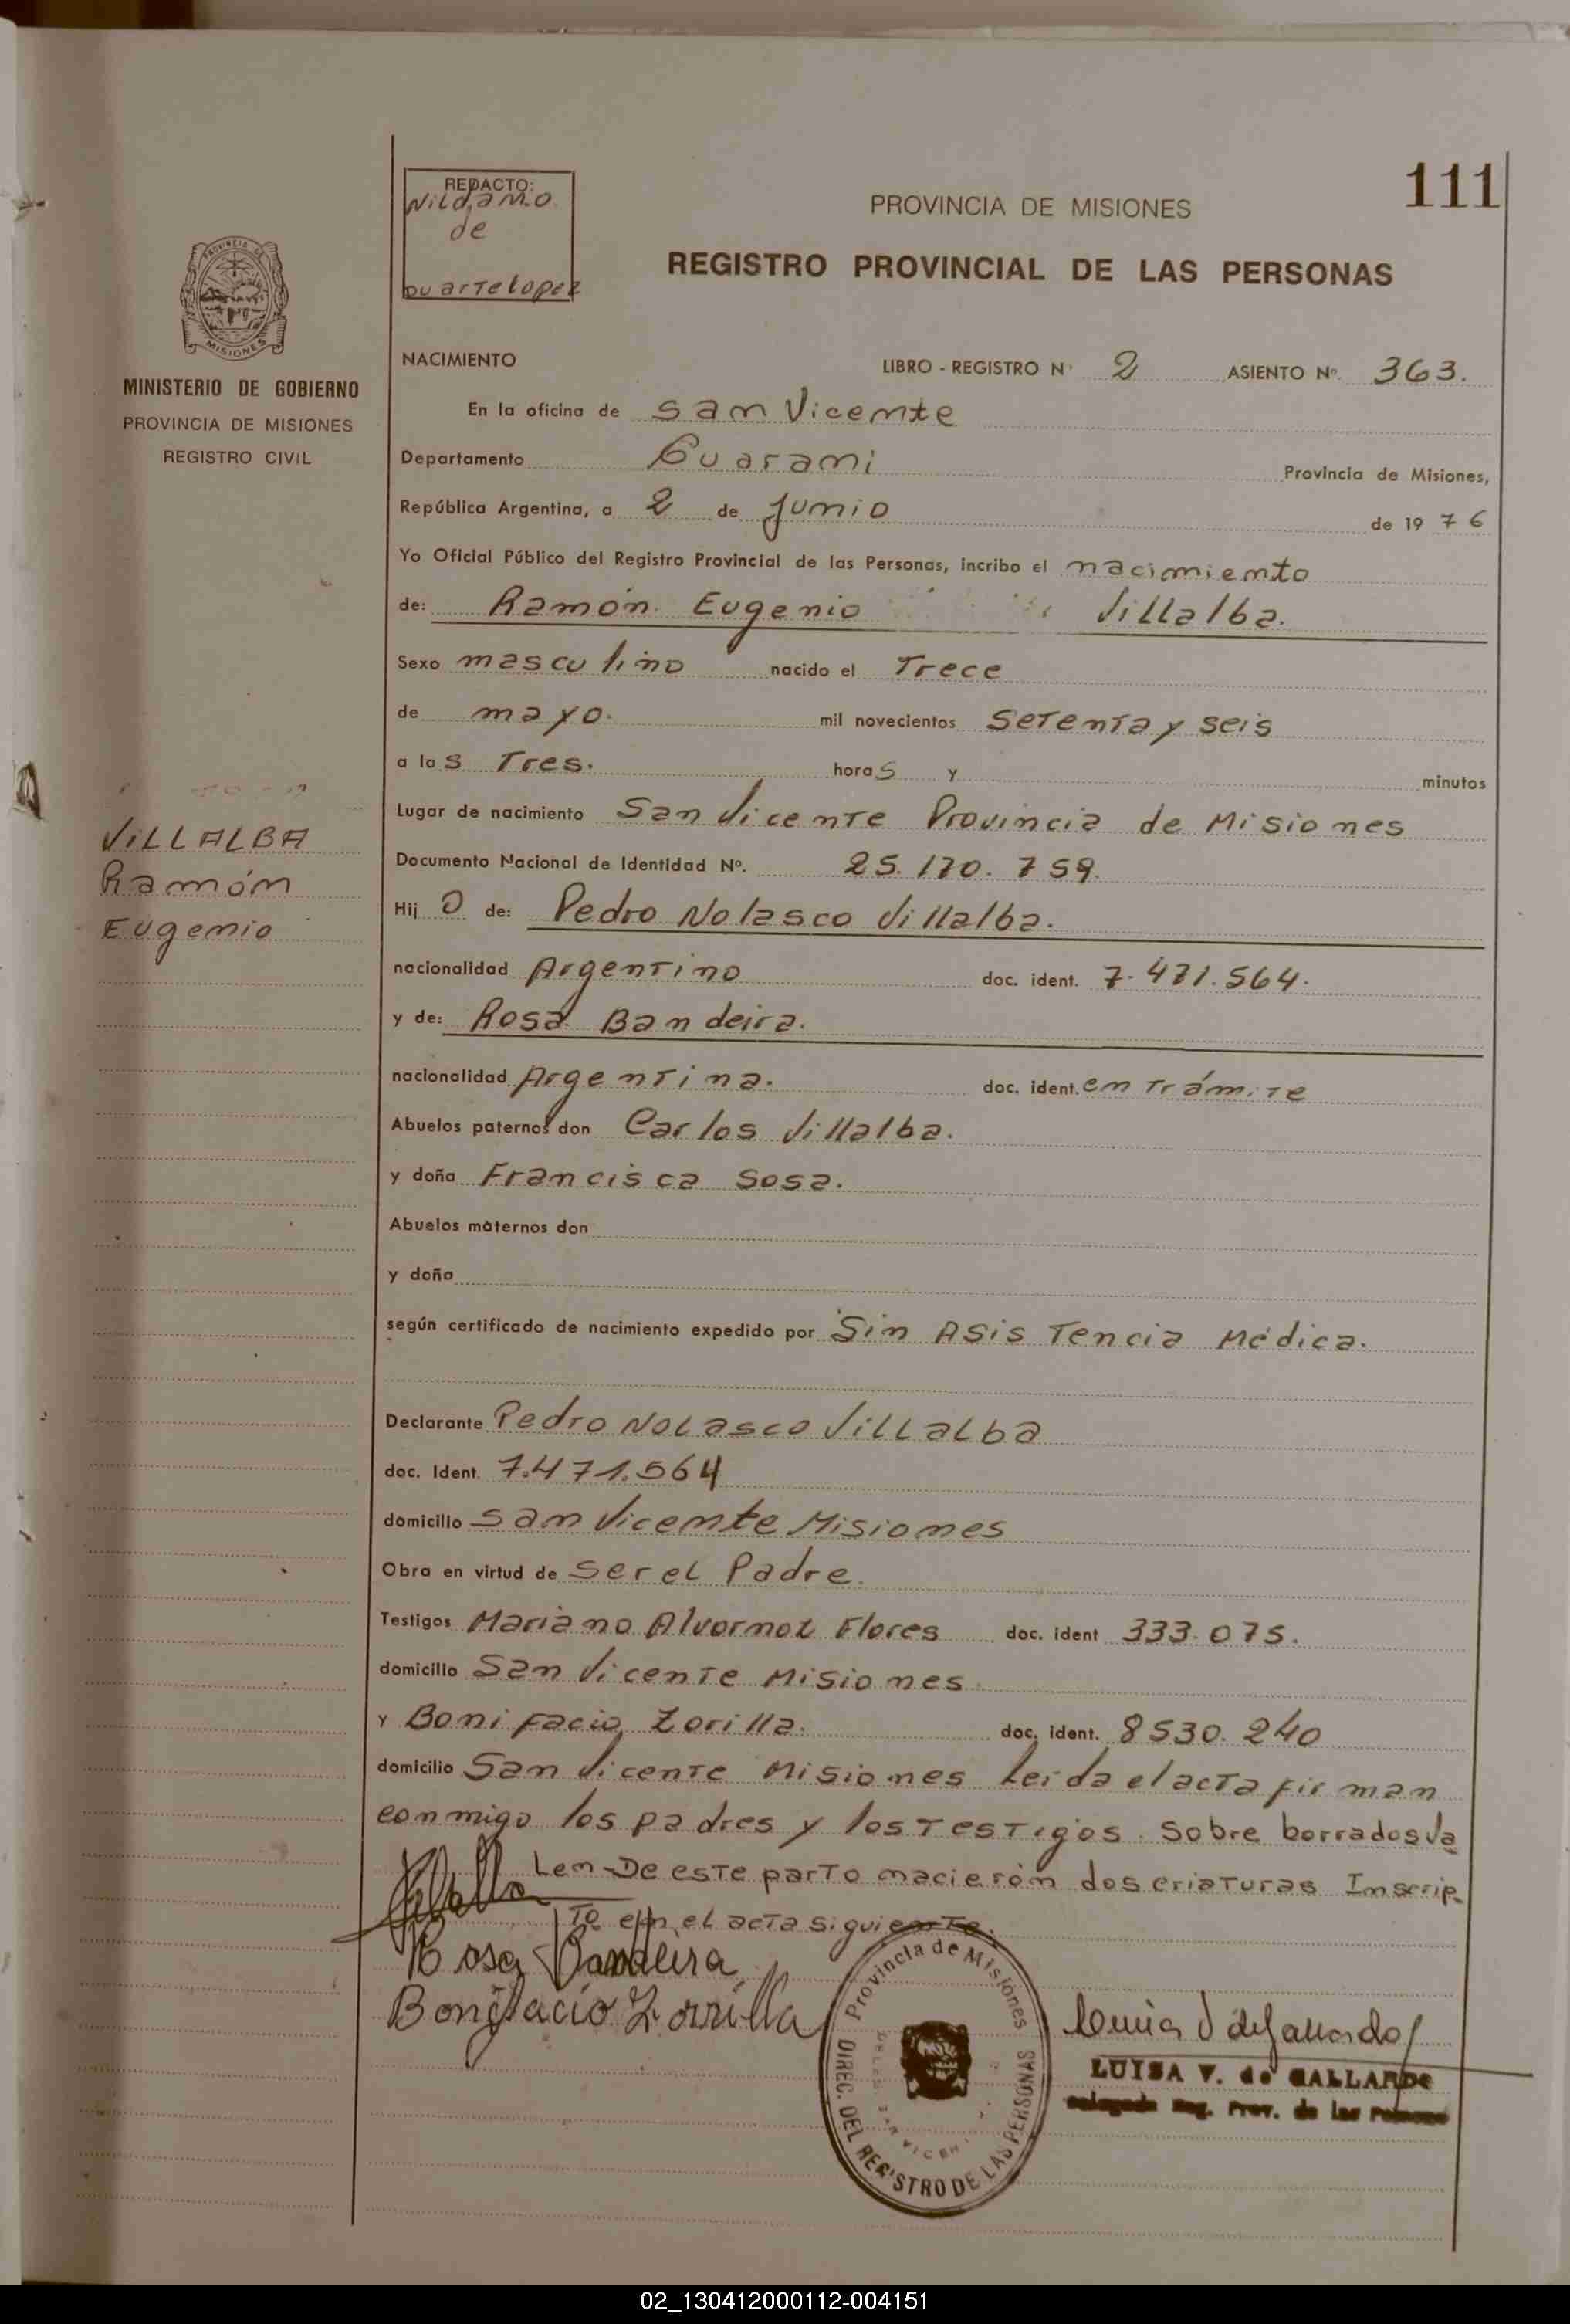 111
REDACTO:
Nilda M.O.
de
Duartelopez
PROVINCIA DE MISIONES
REGISTRO PROVINCIAL DE LAS PERSONAS
PROVINCIA DE
MISIONES
MINISTERIO DE GOBIERNO
PROVINCIA DE MISIONES
REGISTRO CIVIL
NACIMIENTO LIBRO - REGISTRO Nº 2 ASIENTO Nº. 363.
En la oficina de San Vicente
Departamento Guarani Provincia de Misiones,
República Argentina, a 2 de Junio de 1976
Yo Oficial Público del Registro Provincial de las Personas, incribo el nacimiento
de: Ramón Eugenio Villalba.
Sexo masculino nacido el Trece
de mayo. mil novecientos Setenta y seis
a las Tres. horas y minutos
Lugar de nacimiento San Vicente Provincia de Misiones
Documento Nacional de Identidad Nº. 25.170.759.
Hijo de: Pedro Nolasco Villalba.
nacionalidad Argentino doc. ident. 7.471.564.
y de: Rosa Bandeira.
nacionalidad Argentina. doc. ident. en Trámite
Abuelos paternos don Carlos Villalba.
y doña Francisca Sosa.
Abuelos maternos don
y doña
según certificado de nacimiento expedido por Sin Asistencia Médica.
VILLALBA
Ramón
Eugenio
Declarante Pedro Nolasco Villalba
doc. Ident. 7.471.564
domicilio San Vicente Misiones
Obra en virtud de ser el Padre.
Testigos Mariano Alvornoz Flores doc. ident 333.075.
domicilio San Vicente Misiones
y Bonifacio Zorilla. doc. ident. 8530.240
domicilio San Vicente Misiones Leida el acta firman
conmigo los padres y los Testigos. Sobre borrados Va
len-De este parto nacierón dos criaturas Inscrip-
To en el acta siguiente.
Villalba
Rosa Bandeira
Bonifacio Zorrilla
Provincia de Misiones
DIREC. DEL REGISTRO DE LAS PERSONAS
Luisa V de Gallardo
LUISA V. de GALLARDO
Delegada Reg. Prov. de las Personas
02_130412000112-004151